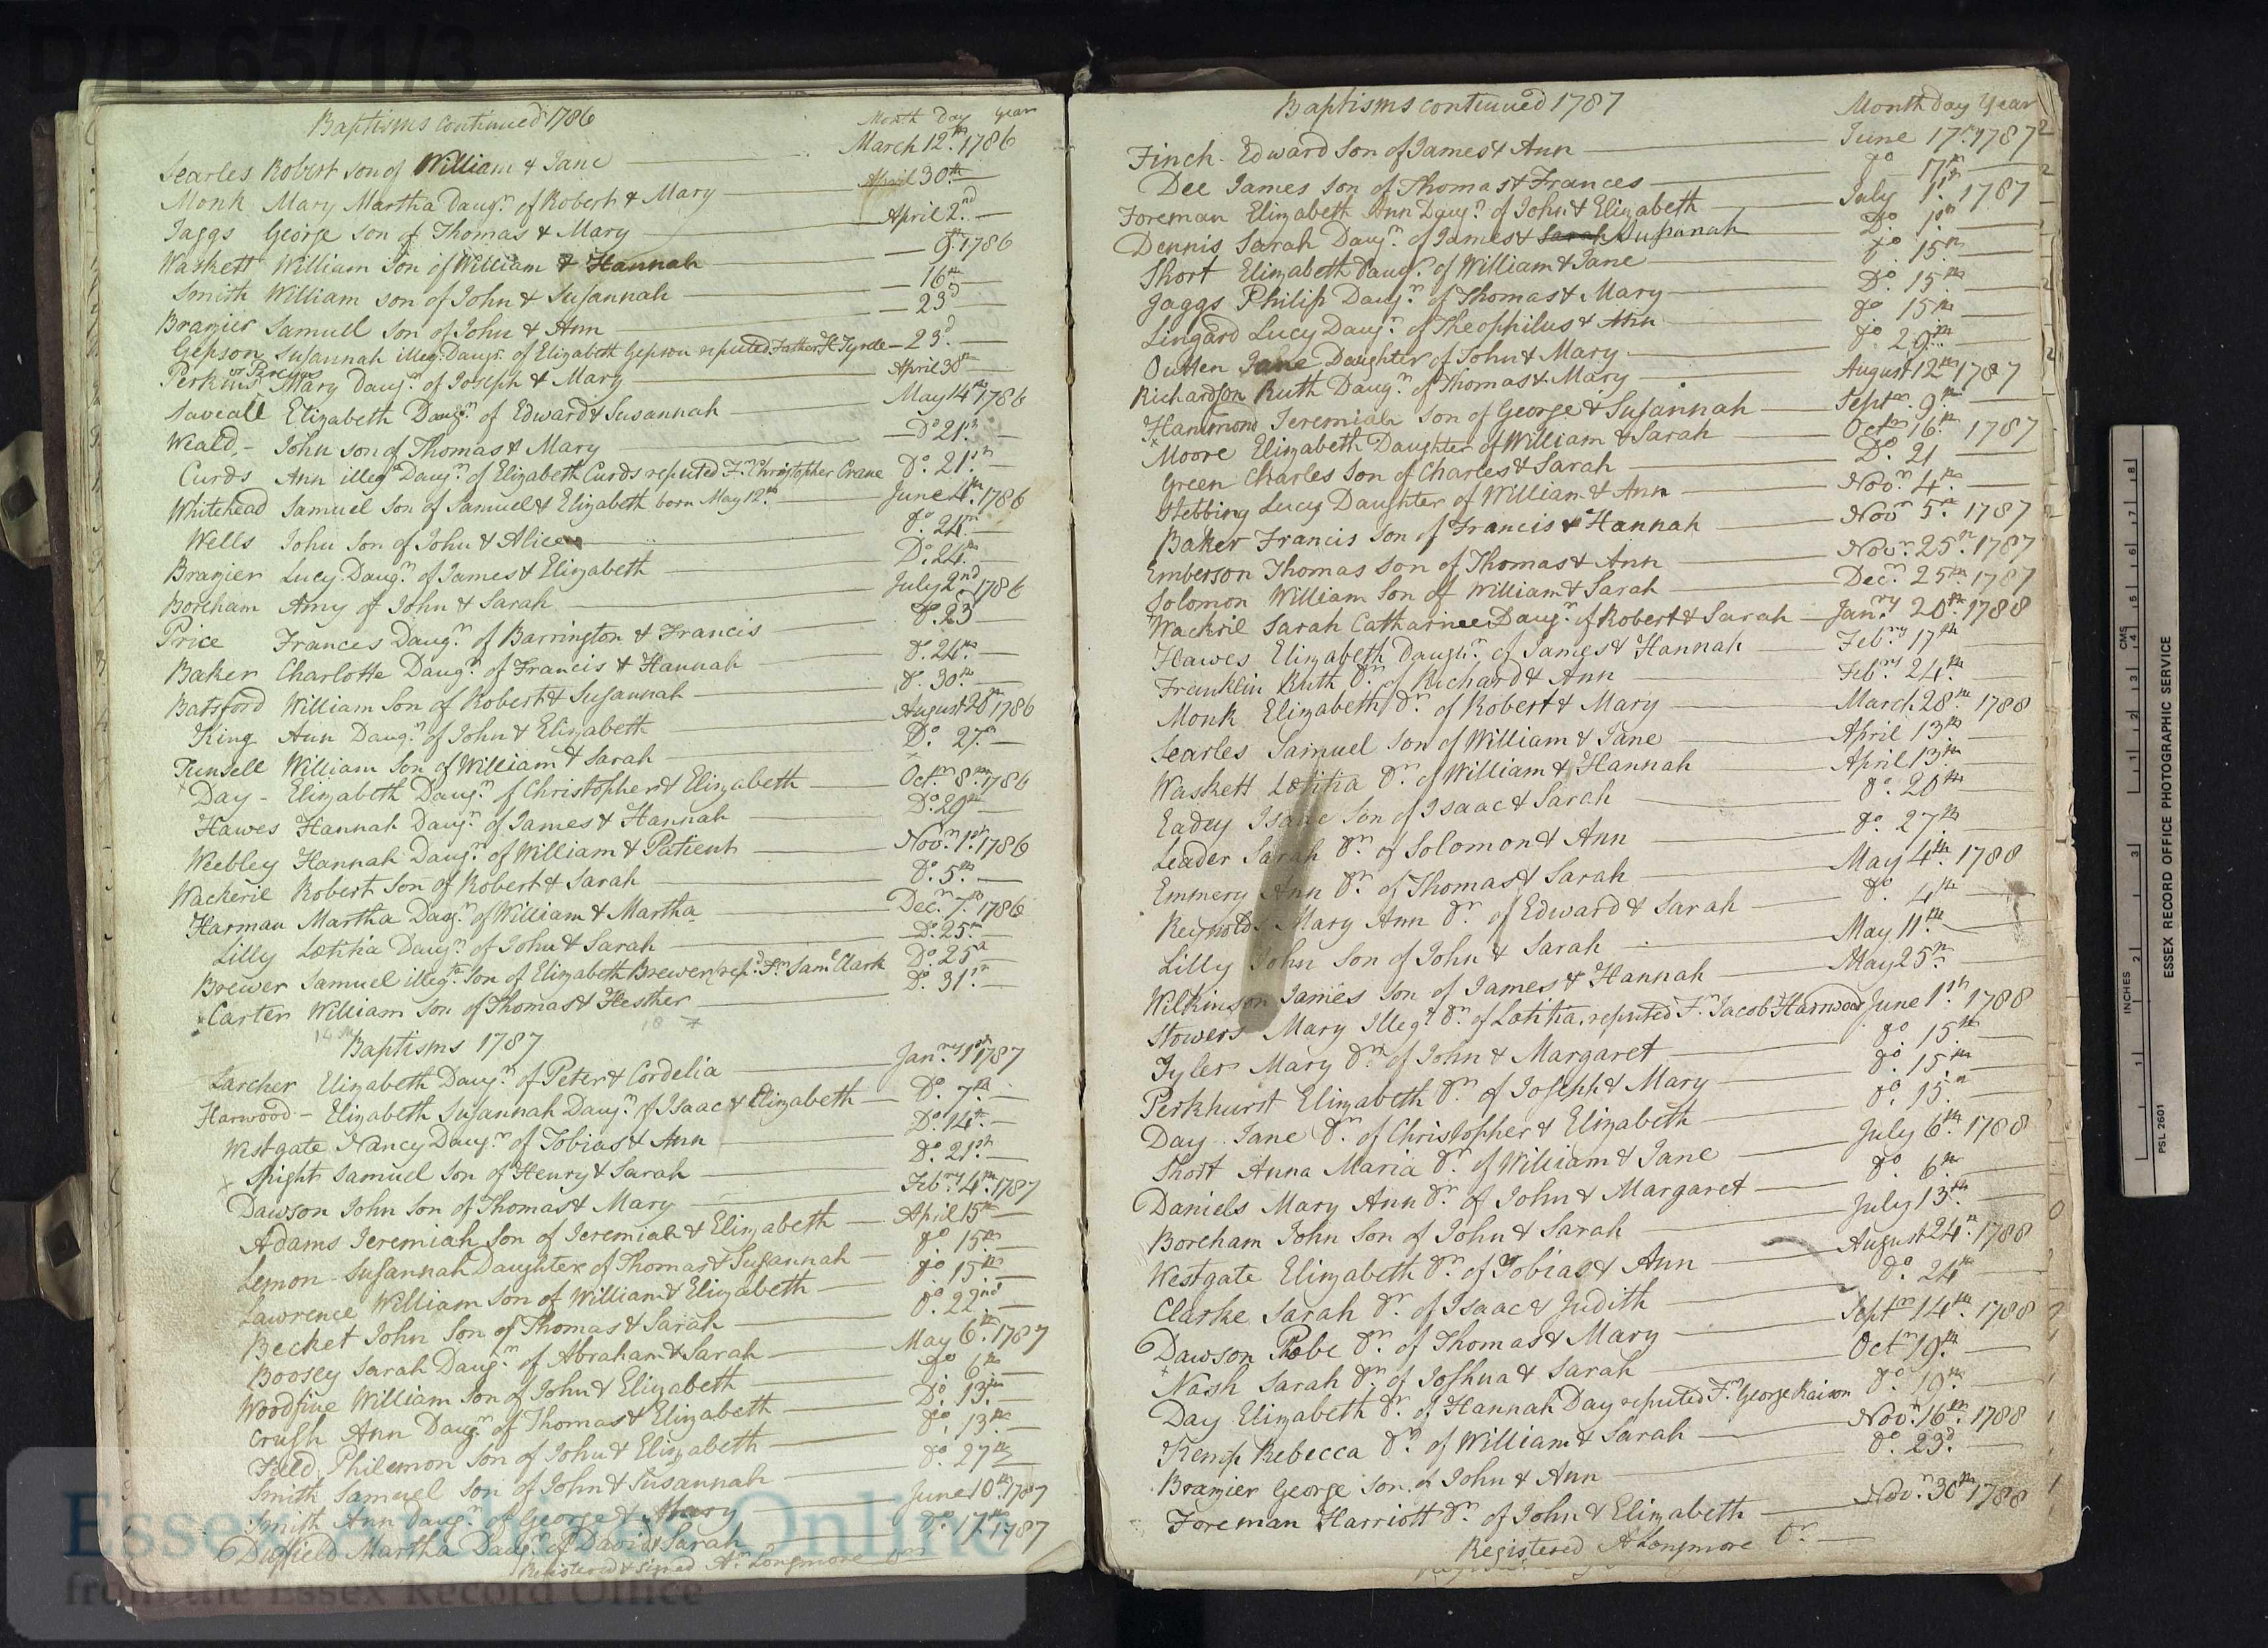 D/P 65/1/3
Baptisms continued 1786
Month Day Year
Searles Robert son of William & Jane March 12th. 1786
Monk Mary Martha Daugr. of Robert & Mary April 30th
Jaggs George son of Thomas & Mary April 2nd
Waskett William Son of William & Hannah 9th. 1786
Smith William son of John & Susannah 16th
Brazier Samuel Son of John & Ann 23d
Gepson Susannah illeg: Daugr. of Elizabeth Gepson reputed Father H. 23d
Perkins or Mary Daugr. of Joseph & Mary April 30th
Saveall Elizabeth Daugr. of Edward & Susannah May 14th 1786
Weald - John son of Thomas & Mary Do 21st
Curds Ann illeg Daugr. of Elizabeth Curds reputed Fr. Christopher Crane Do. 21st
Whitehead Samuel Son of Samuel & Elizabeth born May 12th. June 4th 1786
Wells John Son of John & Alice Do. 24th
Brazier Lucy Daugr. of James & Elizabeth Do. 24th
Boreham Amy of John & Sarah July 2nd 1786
Price Frances Daugr. of Barrington & Francis Do. 23
Baker Charlotte Daugr. of Francis & Hannah Do. 24th
Batsford William Son of Robert & Susannah Do. 30th
King Ann Daugr. of John & Elizabeth August 20th 1786
Tunsell William Son of William & Sarah Do. 27th
Day - Elizabeth Daugr. of Christopher & Elizabeth Octr. 8th 1786
Hawes Hannah Daugr. of James & Hannah Do. 29th
Weebley Hannah Daugr. of William & Patient Novr. 1st. 1786
Wackeril Robert Son of Robert & Sarah Do. 5th
Harman Martha Daugr. of William & Martha Decr. 7th 1786
Lilly Lætitia Daugr. of John & Sarah Do. 25th
Brewer Samuel illegte. Son of Elizabeth Brewer repd. Fr. Saml Clark Do 25th
Carter William Son of Thomas & Hesther Do. 31st
Baptisms 1787
Larcher Elizabeth Daugr. of Peter & Cordelia Janry 1st 1787
Harwood - Elizabeth Susannah Daugr. of Isaac & Elizabeth Do. 7th
Westgate Nancy Daugr. of Tobias & Ann Do. 14th
Spight Samuel Son of Henry & Sarah Do. 21st
Dawson John Son of Thomas & Mary Febry 4th. 1787
Adams Jeremiah Son of Jeremiah & Elizabeth April 15th
Lemon Susannah Daughter of Thomas & Susannah Do. 15th
Lawrence William Son of William & Elizabeth Do 15th
Becket John Son of Thomas & Sarah Do. 22nd
Boosey Sarah Daugr. of Abraham & Sarah May 6th. 1787
Woodfine William Son of John & Elizabeth Do 6th
Crush Ann Daugr. of Thomas & Elizabeth Do. 13th
Field Philemon Son of John & Elizabeth Do. 13th
Smith Samuel Son of John & Susannah Do. 27th
Smith Ann Daugr. of George & Mary June 10th 1787
Duffield Martha Daugr. of David & Sarah Do. 17th 1787
Registered & signed A. Longmore
Baptisms continued 1787
Month Day Year
Finch - Edward Son of James & Ann June 17th 1787
Dee James Son of Thomas & Frances Do 17th
Foreman Elizabeth Ann Daugr. of John & Elizabeth July 1st. 1787
Dennis Sarah Daugr. of James & Sarah Susannah Do. 1st
Short Elizabeth Daugr. of William & Jane Do. 15th
Jaggs Philip Daugr. of Thomas & Mary Do. 15th
Lingard Lucy Daugr. of Theophilus & Ann Do 15th
Outten Jane Daughter of John & Mary Do. 29th
Richardson Ruth Daugr. of Thomas & Mary August 12th 1787
Hammond Jeremiah Son of George & Susannah Septr. 9th
Moore Elizabeth Daughter of William & Sarah Octr 16th 1787
Green Charles Son of Charles & Sarah Do. 21
Stebbing Lucy Daughter of William & Ann Novr. 4th
Baker Francis Son of Francis & Hannah Novr 5th. 1787
Emberson Thomas Son of Thomas & Ann Novr. 25th. 1787
Solomon William Son of William & Sarah Decr. 25th. 1787
Wackril Sarah Catharine Daugr. of Robert & Sarah Janry 20th. 1788
Hawes Elizabeth Daughr. of James & Hannah Febry 17th
Franklin Ruth Dr. of Richard & Ann Febry 24th
Monk Elizabeth Dr. of Robert & Mary March 28th 1788
Searles Samuel Son of William & Jane April 13th
Waskett Lætitia Dr. of William & Hannah April 13th
Eadey Isaac Son of Isaac & Sarah Do. 20th
Leader Sarah Dr. of Solomon & Ann Do. 27th
Emmery Ann Dr. of Thomas & Sarah May 4th. 1788
Reynolds Mary Ann Dr. of Edward & Sarah Do. 4th
Lilly John Son of John & Sarah May 11th
Wilkinson James Son of James & Hannah May 25th
Stowers Mary Illegt. Dr. of Lætitia, reputed Fr. Jacob Harwood June 1st. 1788
Tyler Mary Dr. of John & Margaret Do 15th
Perkhurst Elizabeth Dr. of Joseph & Mary Do. 15th
Day Jane Dr. of Christopher & Elizabeth Do. 15th
Short Anna Maria Dr. of William & Jane July 6th. 1788
Daniels Mary Ann Dr. of John & Margaret Do. 6th
Boreham John Son of John & Sarah July 13th
Westgate Elizabeth Dr. of Tobias & Ann August 24th. 1788
Clarke Sarah Dr. of Isaac & Judith Do. 24th
Dawson Phobe Dr. of Thomas & Mary Septr 14th. 1788
Nash Sarah Dr. of Joshua & Sarah Octr 19th
Day Elizabeth Dr. of Hannah Day reputed Fr. George Raison Do. 19th
Kemp Rebecca Dr. of William & Sarah Novr. 16th. 1788
Brazier George Son of John & Ann Do. 23d
Foreman Harriott Dr. of John & Elizabeth Novr. 30th 1788
Registered A Longmore Vr.
INCHES
CMS
ESSEX RECORD OFFICE PHOTOGRAPHIC SERVICE
PSL 2601
Essex Archives Online
from the Essex Record Office